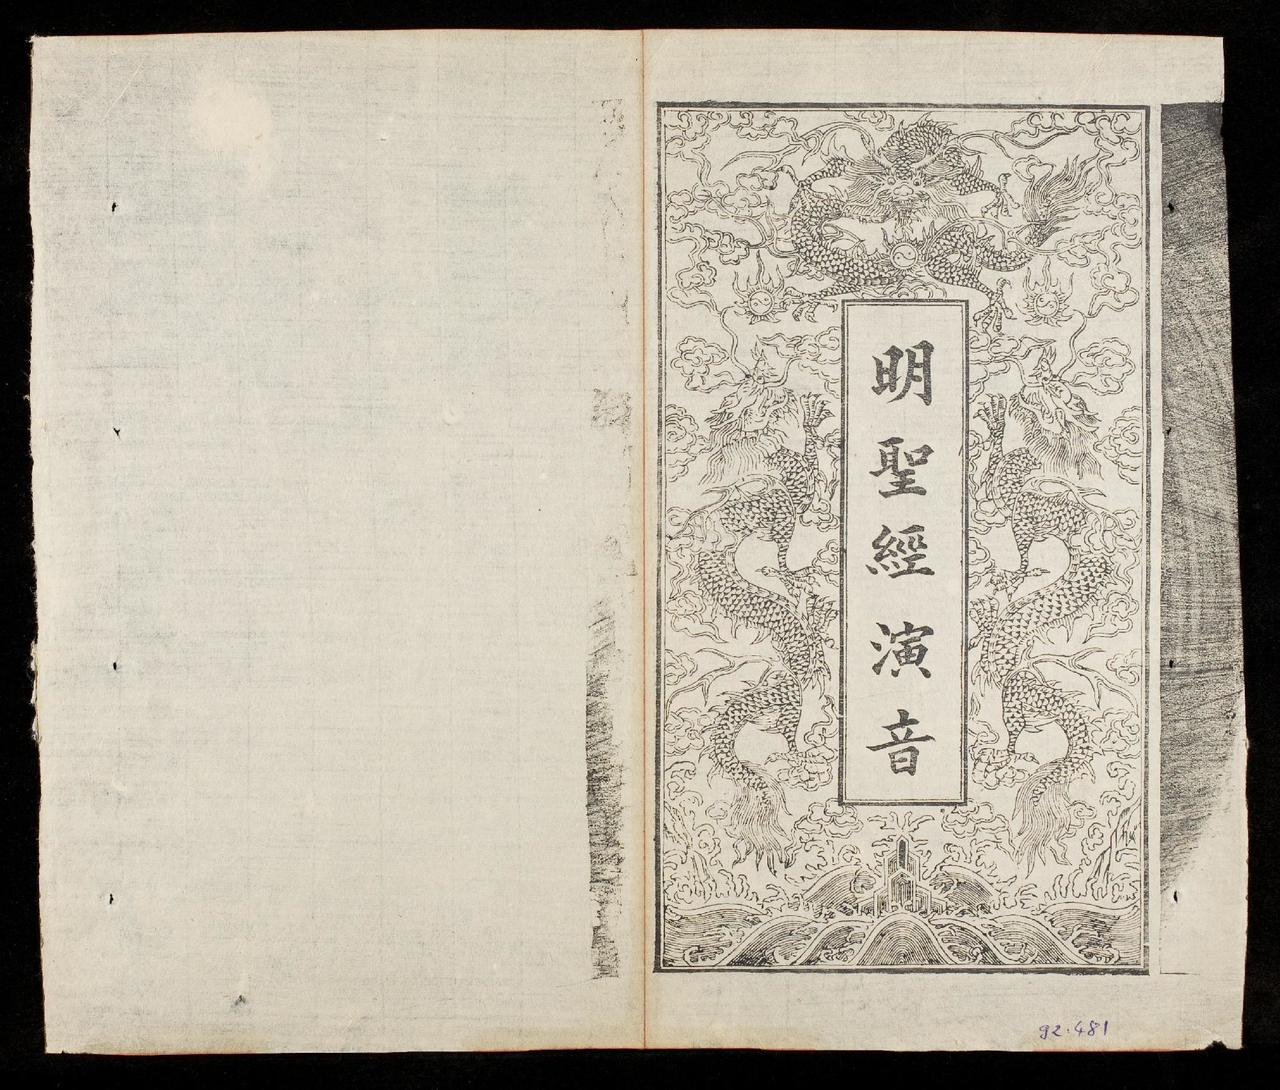 明聖經演音
92.481